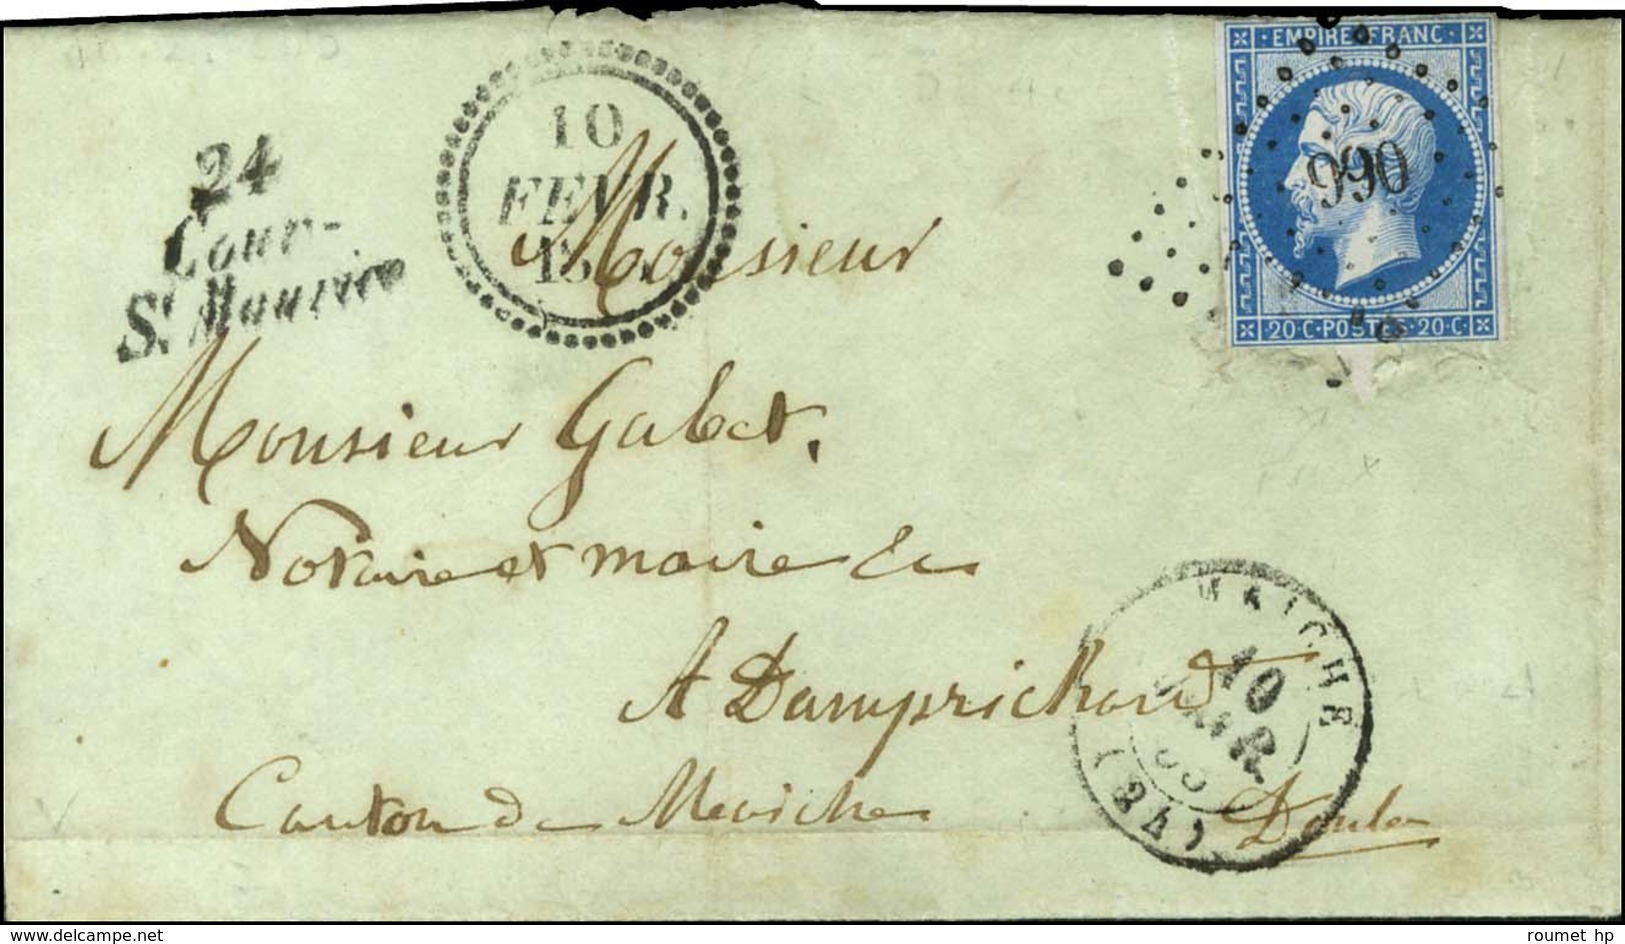 24
Cour-
St Maurice
10
FEVR.
EMPIRE FRANC
990
20·C·POSTES·20·C
Monsieur
Monsieur Gabet.
Notaire et maire &
A Damprichard
MAICHE
10
(24)
Canton de Maiche Doubs
roumet hp